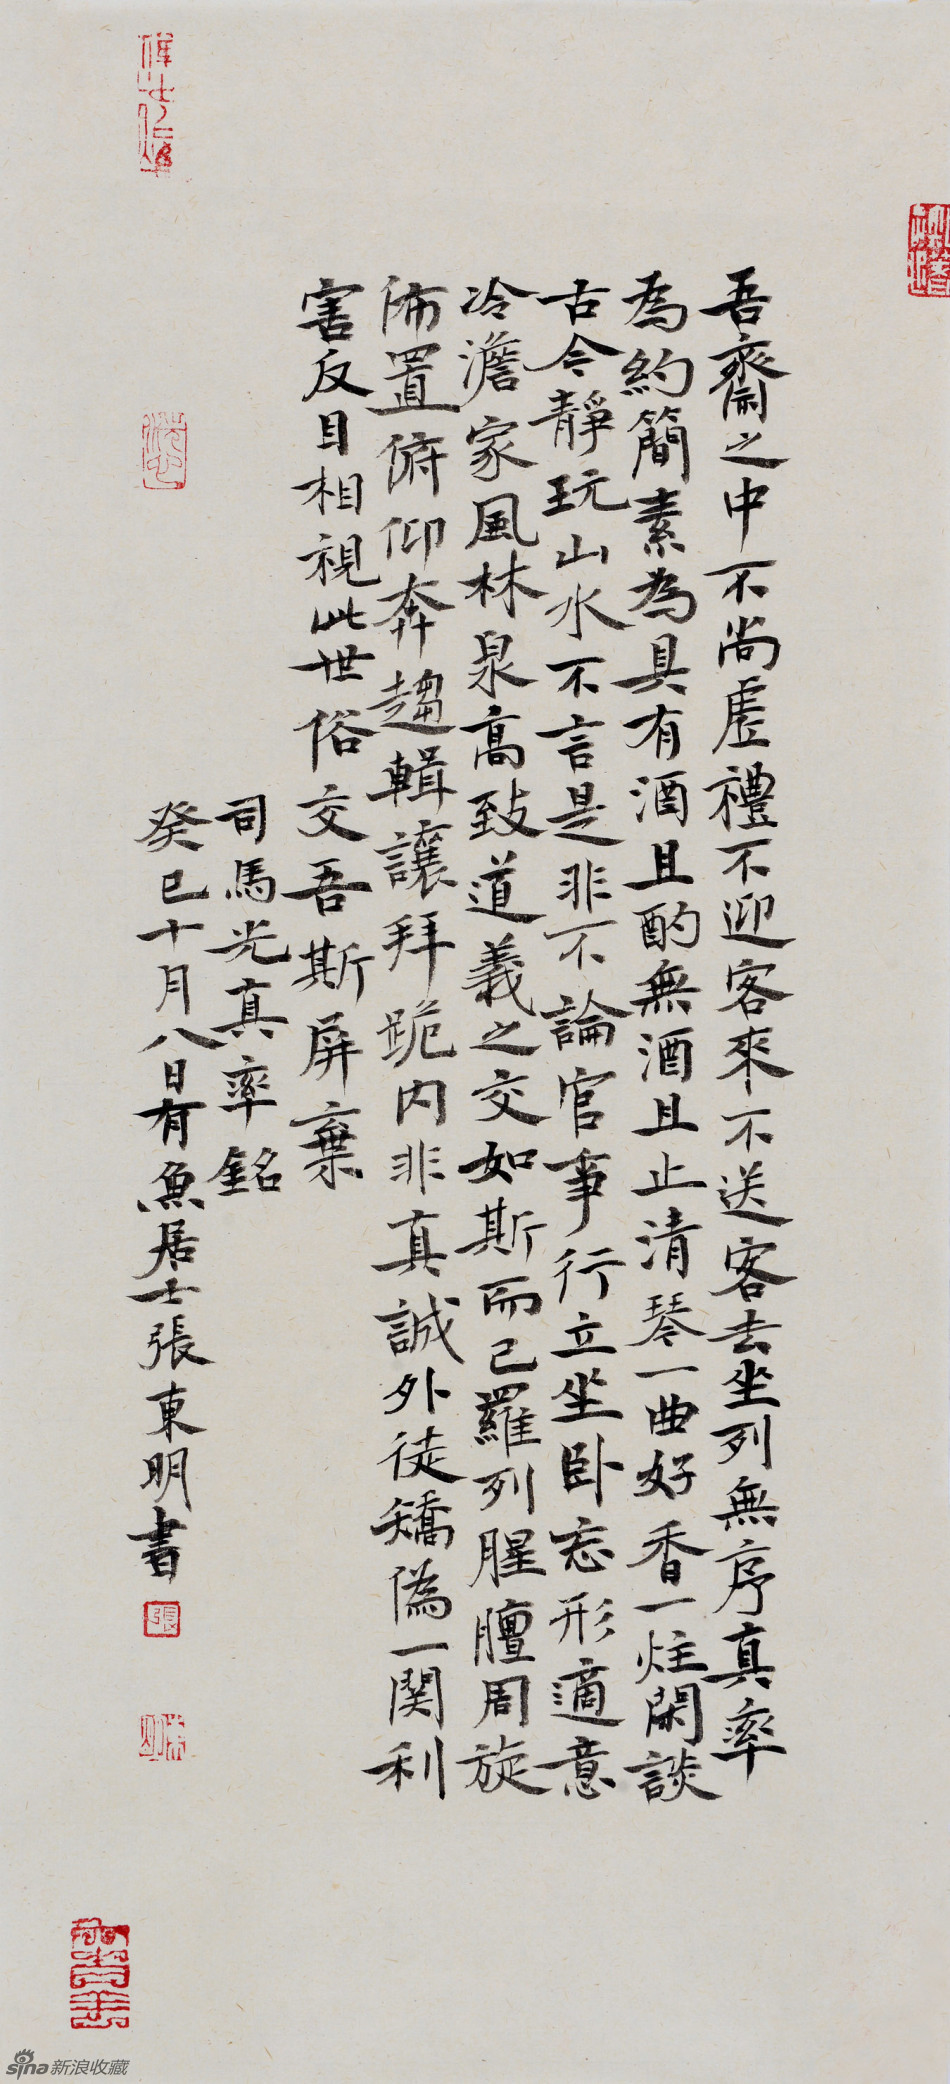 吾齋之中不尚虛禮不迎客來不送客去坐列無序真率
為約簡素為具有酒且酌無酒且止清琴一曲好香一炷閑談
古今靜玩山水不言是非不論官事行立坐卧忘形適意
冷澹家風林泉高致道義之交如斯而已羅列腥膻周旋
佈置俯仰奔趨輯讓拜跪内非真誠外徒矯偽一関利
害反目相視此世俗交吾斯屏棄
司馬光真率銘
癸巳十月八日有魚居士張東明書
張
sina新浪收藏